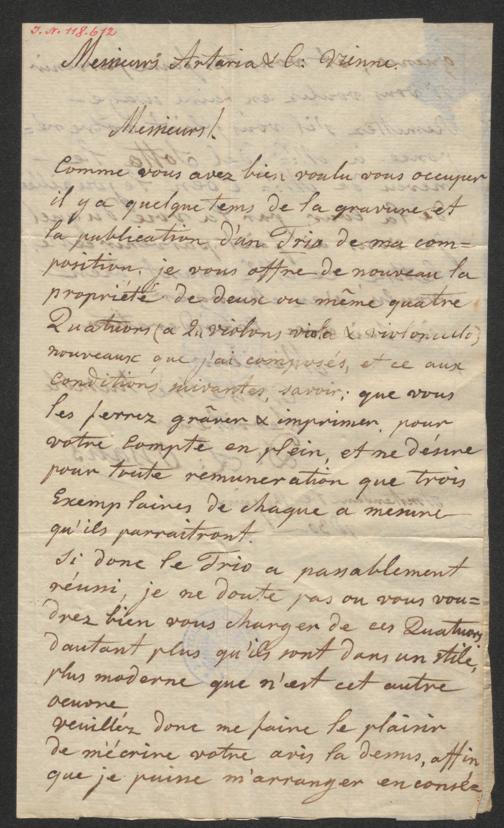 J. N. 118.612
Messieurs Artaria & C: Vienne.
Messieurs!
Comme vous avez bien voulu vous occuper
il y a quelque tems de la gravure, et
la publication d'un Trio de ma com=
position, je vous offre de nouveau la
propriété de deux ou même quatre
Quatuors (a 2 violons viola & violoncello)
nouveaux que j'ai composés, et ce aux
conditions suivantes, savoir; que vous
les ferrez grâver & imprimer, pour
votre Compte en plein, et ne désire
pour toute remuneration que trois
Exemplaires de chaque a mesure
qu'ils parraitront.
Si donc le Trio a passablement
réussi, je ne doute pas ou vous vou=
drez bien vous charger de ces Quatuors
d'autant plus qu'ils sont dans un stile,
plus moderne que n'est cet autre
oeuvre
veuilléz donc me faire le plaisir
de m'écrire votre avis la dessus, affin
que je puisse m'arranger en consé=